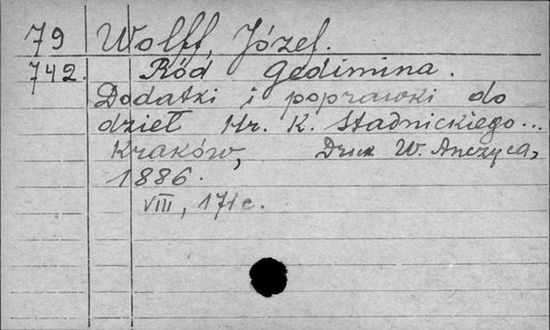 79 Wolff, Józef.
742. Ród Gedimina.
Dodatki i poprawki do
dzieł Hr. K. Stadnickiego...
Kraków, Druk W. Anczyca,
1886.
VIII, 171 c.